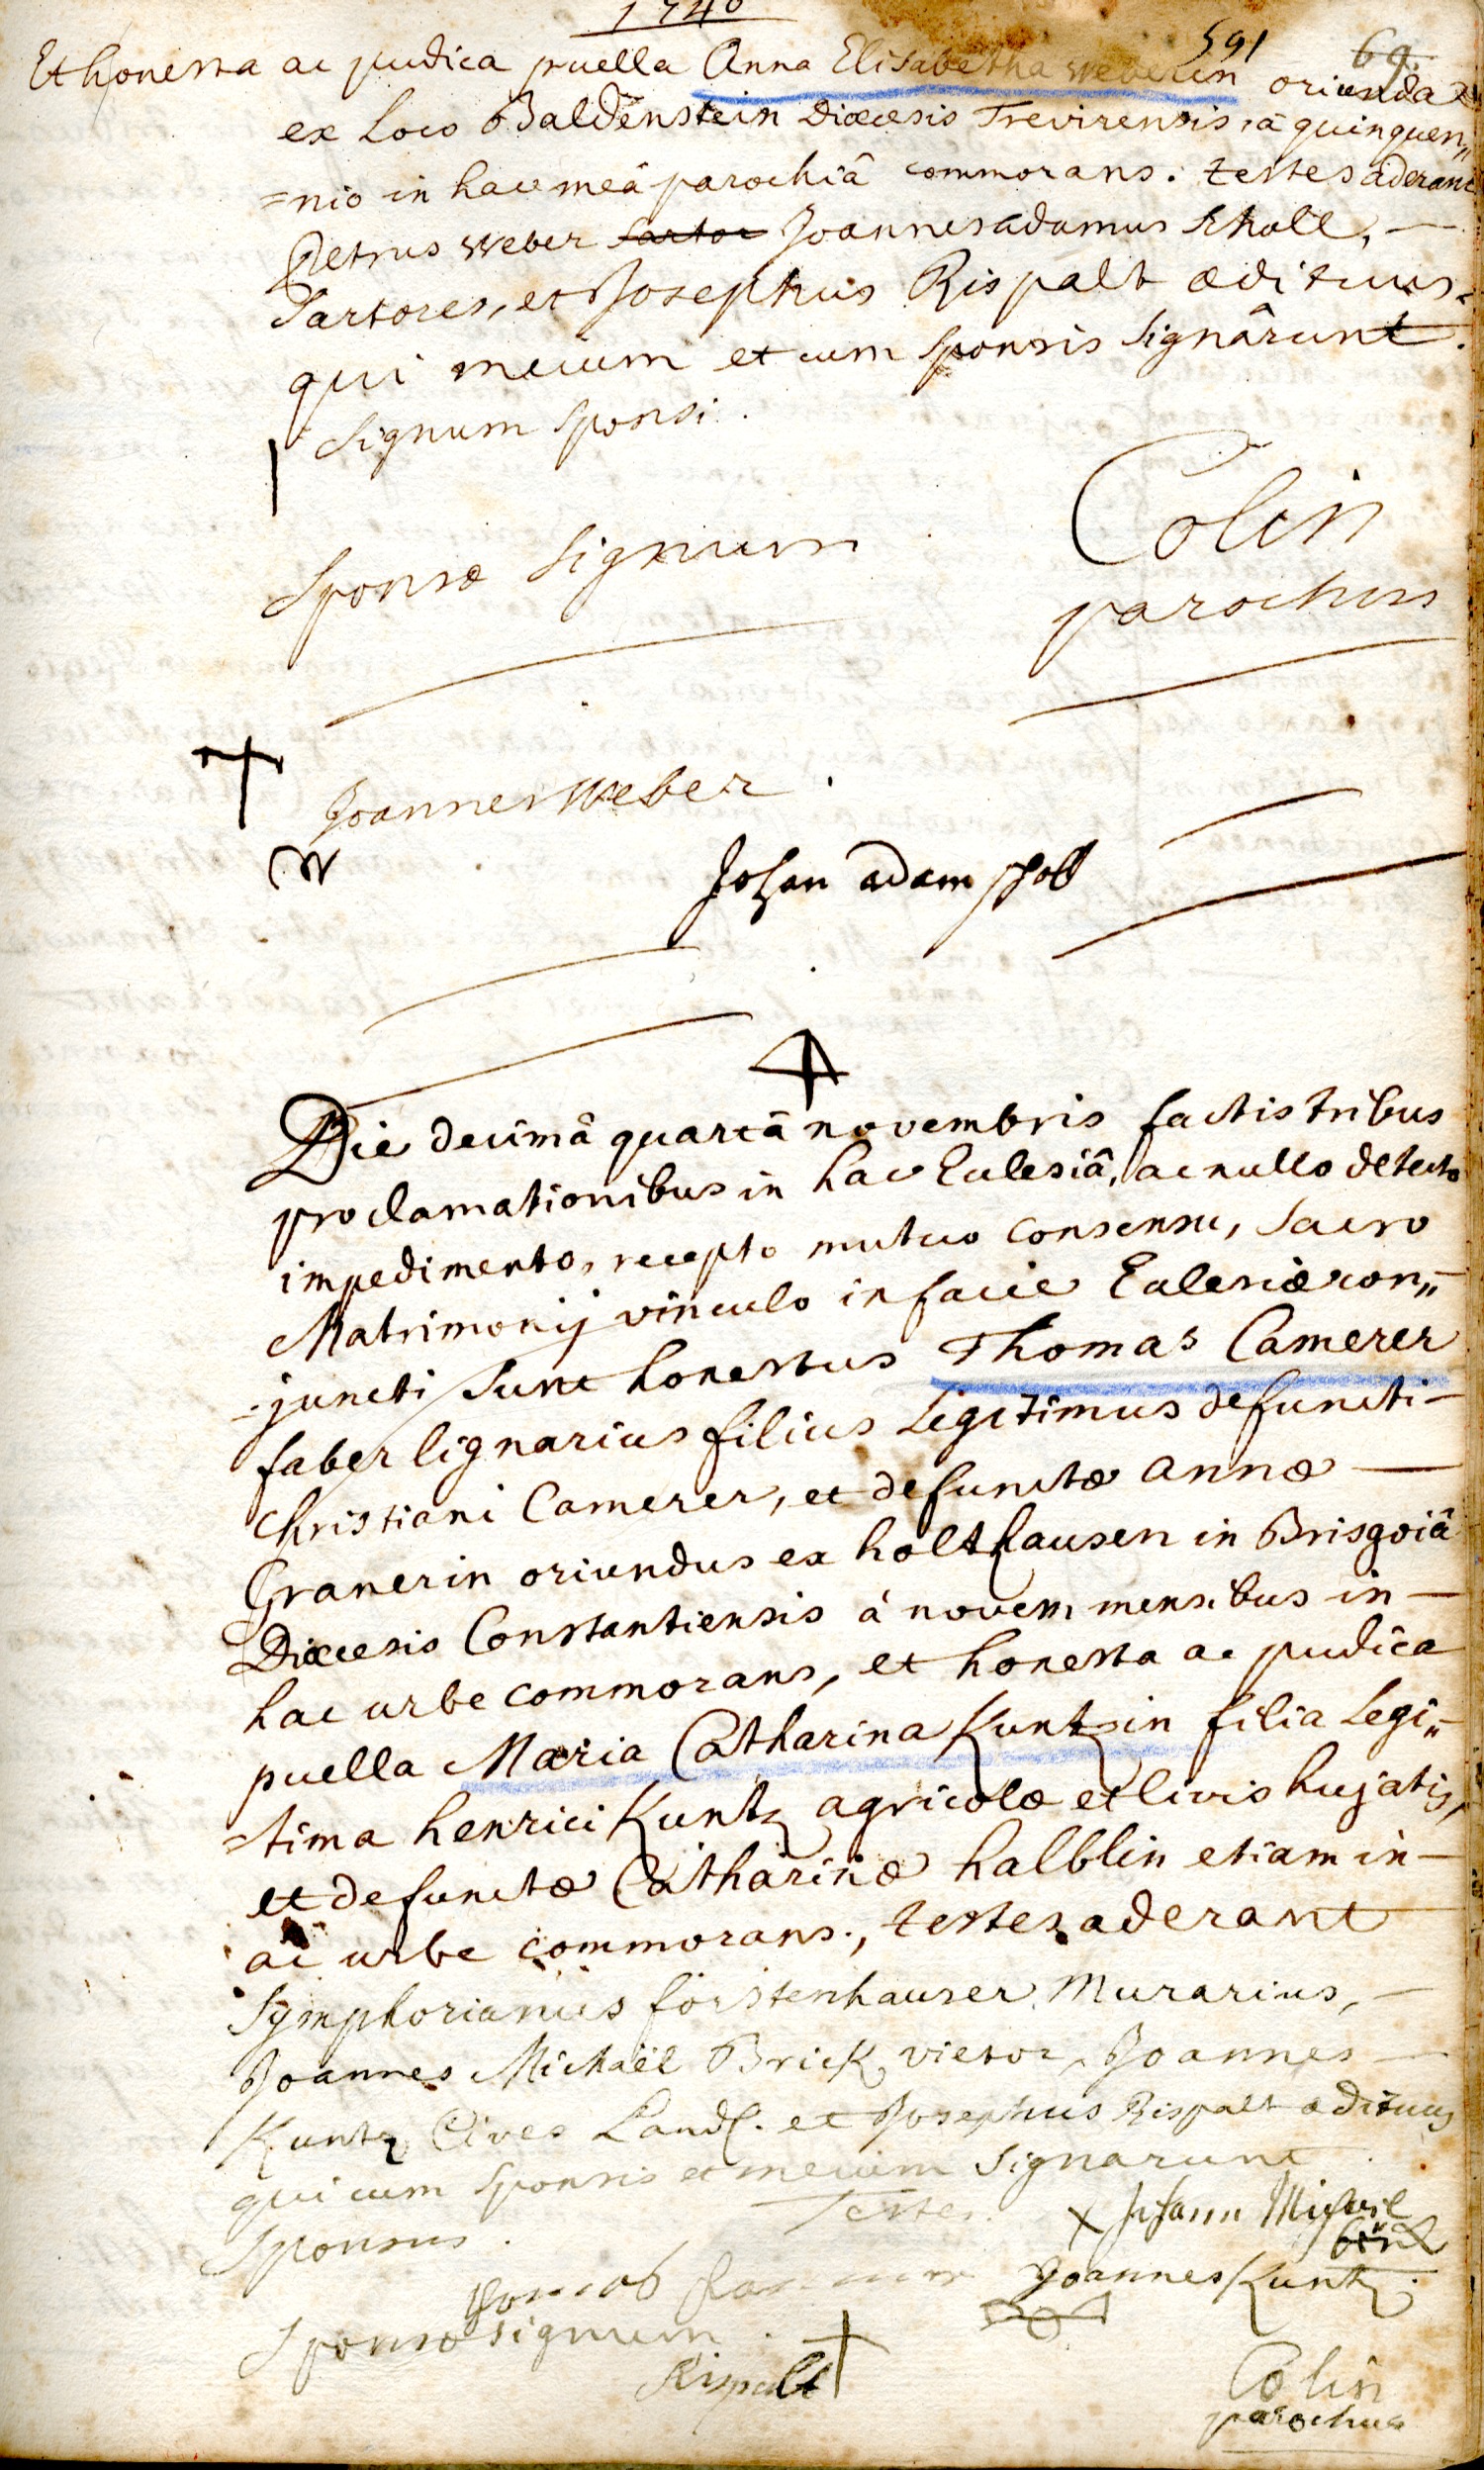 1740
591 69.
Et honesta ac pudica puella Anna Elisabetha weberin oriunda
ex Loco Baldenstein Diœcesis Trevirensis, a quinquen„
=nio in hac meâ parochiâ commorans. testes aderant
Petrus weber sartor Joannes adamus scholl, —
Sartores, et Josephus Rispalt ædituus.
qui mecum et cum sponsis signârunt.
Signum sponsi.
Sponsæ signum
Colin
parochus
Joannes weber
W
Johan adam scholl
Die decimâ quartâ novembris factis tribus
proclamationibus in hac Ecclesiâ, ac nullo detecto
impedimento, recepto mutuo consensu, sacro
Matrimonij vinculo in facie Ecclesiæ con„
-juncti sunt honestus Thomas Camerer
faber lignarius filius Legitimus defuncti —
christiani Camerer, et defunctæ annæ —
Granerin oriundus ex holthausen in Brisgoiâ
Diœcesis Constantiensis à novem mensibus in —
hac urbe commorans, et honesta ac pudica
puella Maria Catharina Kuntzin filia Legi„
=tima henrici Kuntz agricolæ et Civis hujatis,
et defunctæ Catharinæ halblin etiam in —
ac urbe commorans., testes aderant
Symphorianus förstenhauser Murarius, —
Joannes Michaël Brick vietor, Joannes —
Kuntz Cives Land. et Josephus Rispalt ædituus
qui cum sponsis et mecum signarunt
Sponsus. Testes. x Johann Michael
Joannes Kuntz
Sponsæ signum.
Rispalt
Colin
parochus